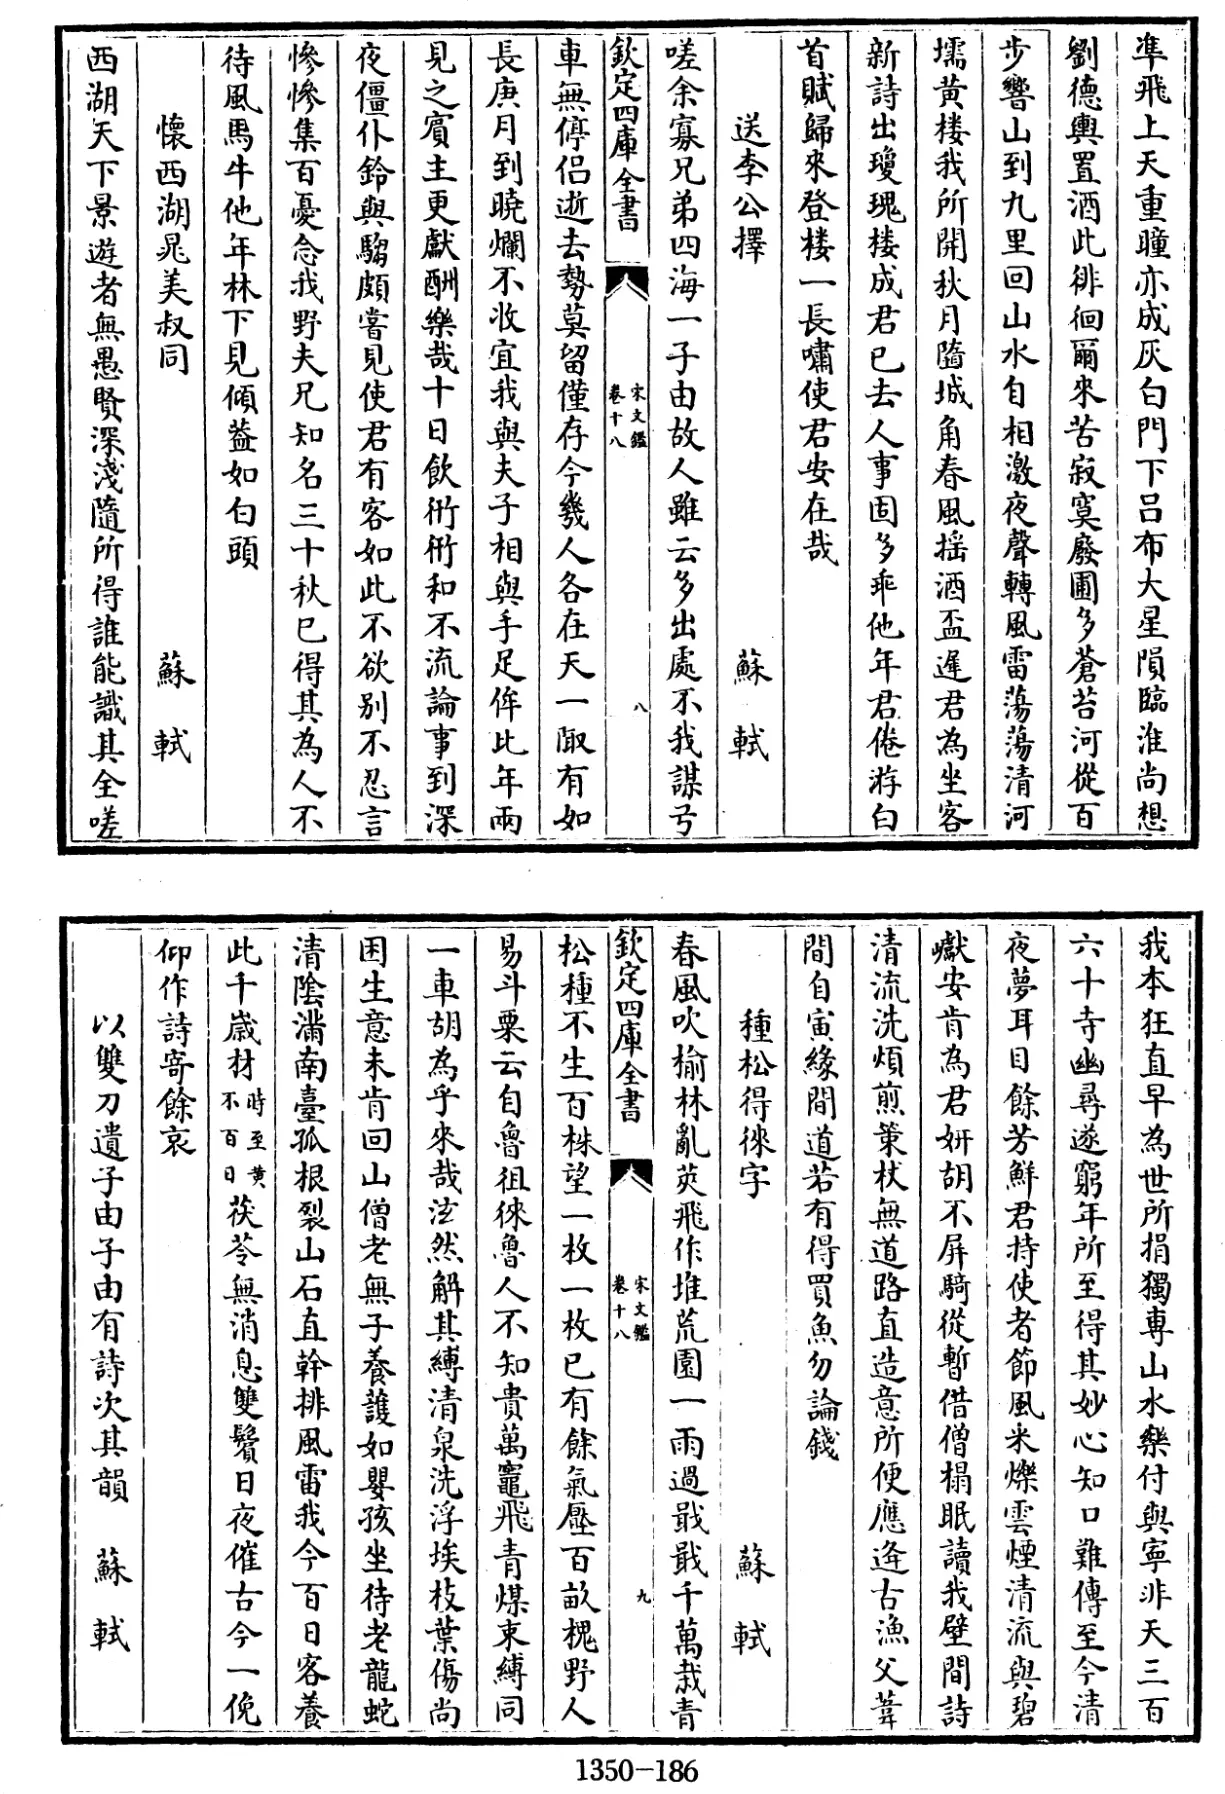 凖飛上天重瞳亦成灰白門下吕布大星隕臨淮尚想
劉德輿置酒此徘徊爾來苦寂寞廢圃多蒼苔河從百
步響山到九里回山水自相激夜聲轉風雷蕩蕩清河
壖黄樓我所開秋月隨城角春風揺酒盃遲君為坐客
新詩出瓊瑰樓成君已去人事固多乖他年君倦游白
首賦歸來登樓一長嘯使君安在哉
送李公擇 蘇軾
嗟余寡兄弟四海一子由故人雖云多出處不我謀弓
欽定四庫全書 宋文鑑 卷十八 八
車無停侣逝去勢莫留僅存今幾人各在天一陬有如
長庚月到曉爛不收宜我與夫子相與手足侔比年兩
見之賓主更獻酬樂哉十日飲衎衎和不流論事到深
夜僵仆鈴與騶頗嘗見使君有客如此不欲别不忍言
慘慘集百憂念我野夫兄知名三十秋已得其為人不
待風馬牛他年林下見傾葢如白頭
懷西湖晁美叔同 蘇軾
西湖天下景遊者無愚賢深淺隨所得誰能識其全嗟
我本狂直早為世所捐獨專山水樂付與寜非天三百
六十寺幽尋遂窮年所至得其妙心知口難傳至今清
夜夢耳目餘芳鮮君持使者節風采爍雲煙清流與碧
巘安肯為君妍胡不屏騎從暫借僧榻眠讀我壁間詩
清流洗煩煎策杖無道路直造意所便應逄古漁父葦
間自寅緣間道若有得買魚勿論錢
種松得徠字 蘇軾
春風吹榆林亂莢飛作堆荒園一雨過戢戢千萬栽青
欽定四庫全書 宋文鑑 卷十八 九
松種不生百株望一枚一枚已有餘氣壓百畝槐野人
易斗粟云自魯徂徠魯人不知貴萬竈飛青煤束縛同
一車胡為乎來哉泫然解其縛清泉洗浮埃枝葉傷尚
困生意未肯回山僧老無子養護如嬰孩坐待老龍蛇
清陰滿南臺孤根裂山石直幹排風雷我今百日客養
此千嵗材時至黄不百日茯苓無消息雙鬢日夜催古今一俛
仰作詩寄餘哀
以雙刀遺子由子由有詩次其韻 蘇軾
1350-186